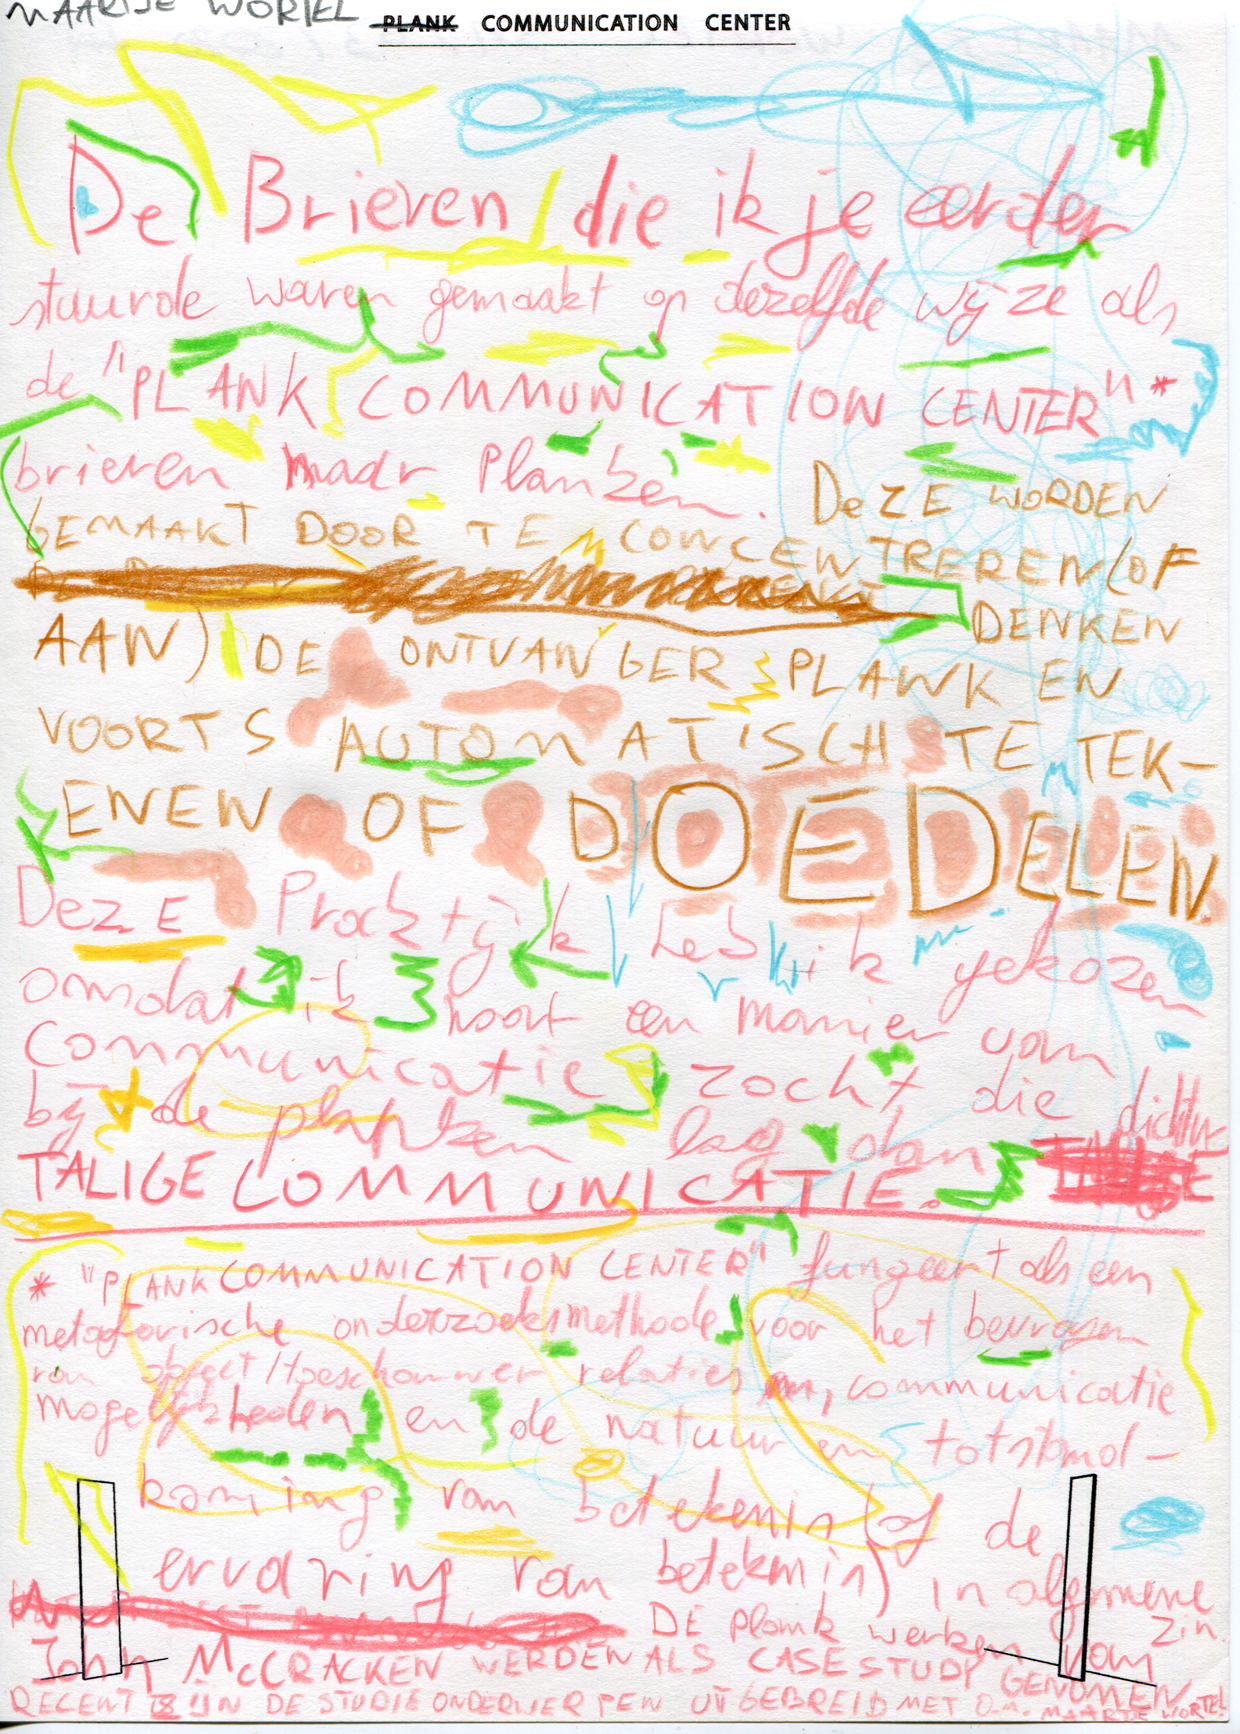 MAARTJE WORTEL
PLANK COMMUNICATION CENTER
De Brieven die ik je eerder
stuurde waren gemaakt op dezelfde wijze als
de "PLANK COMMUNICATION CENTER"*
brieven maar Planken. DeZE WORDEN
GEMAAKT DOOR TE CONCENTREREN (OF
DENKEN
AAN) DE ONTVANGER PLANK EN
VOORTS AUTOMATISCH TE TEK-
ENEN OF DOEDELEN.
DezE Praktijk heb ik gekozen
omdat ik naar een manier van
Communicatie zocht die dichter
bij de planken lag dan
TALIGE COMMUNICATIE.
* "PLANK COMMUNICATION CENTER" fungeert als een
metaforische onderzoeksmethode voor het bevragen
van object/toeschouwer relaties, communicatie
mogelijkheden en de natuur en totstand-
koming van betekenis (of de
ervaring van betekenis) in algemene
zin.
DE plank werken van
John McCRACKEN WERDEN ALS CASE STUDY GENOMEN.
RECENT ZIJN DE STUDIE ONDERWERPEN UITGEBREID MET O.A. MAARTJE WORTEL